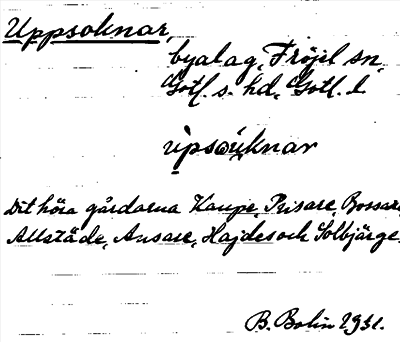 Uppsoknar,
byalag, Fröjel sn,
Gotl. s. hd, Gotl. l.
Dit höra gårdarna Kaupe, Prisare, Bossare,
Allstäde, Ansare, Hajdes och Solbjärge.
B. Bolin 1931.